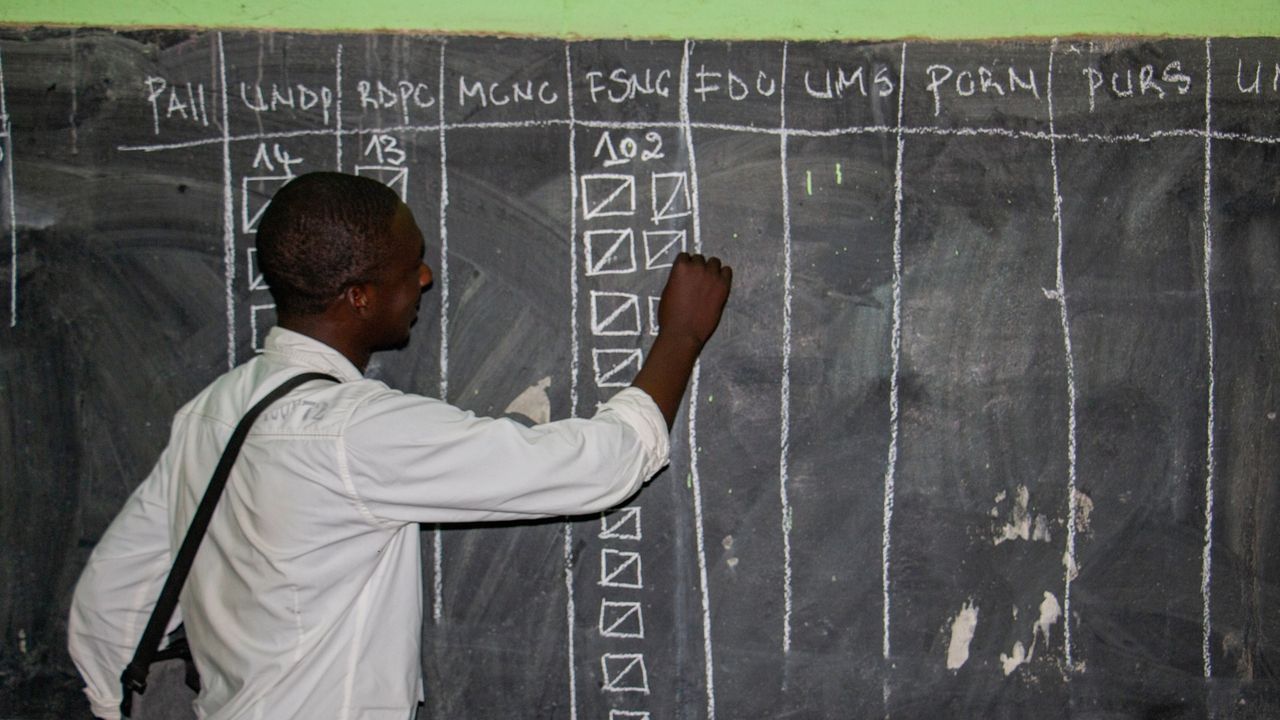 PAll UNDP RDPC MCNC FSNC FDC UMS PCRN PURS
14 13 102